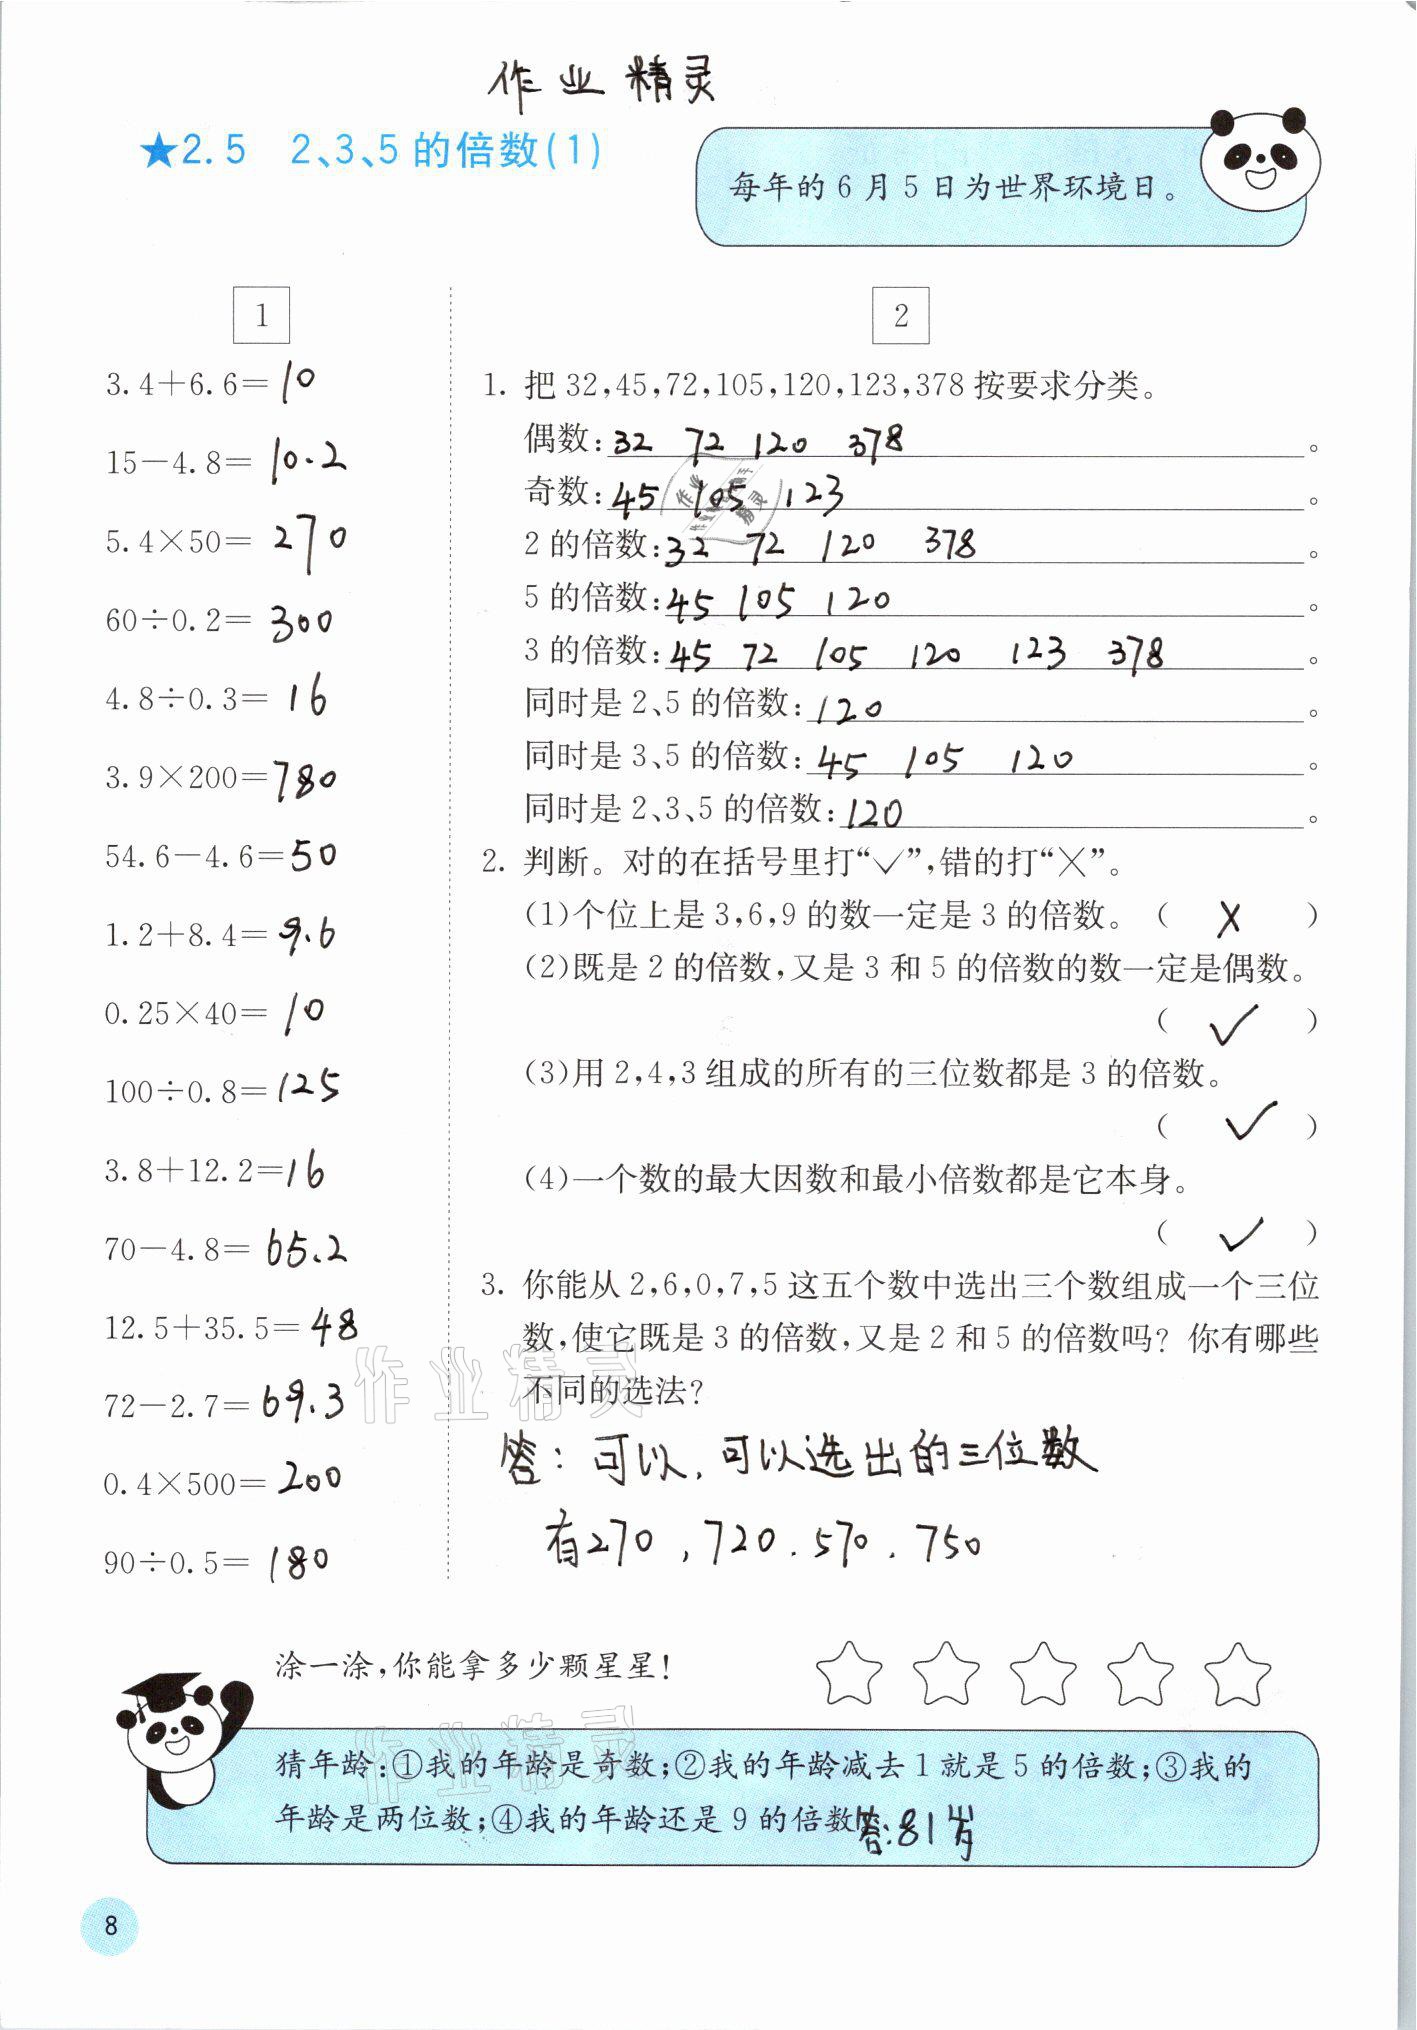 作业精灵
★2.5 2、3、5的倍数(1)
每年的6月5日为世界环境日。
1
3.4+6.6=10
15-4.8=10.2
5.4×50=270
60÷0.2=300
4.8÷0.3=16
3.9×200=780
54.6-4.6=50
1.2+8.4=9.6
0.25×40=10
100÷0.8=125
3.8+12.2=16
70-4.8=65.2
12.5+35.5=48
72-2.7=69.3
0.4×500=200
90÷0.5=180
2
1. 把32,45,72,105,120,123,378按要求分类。
偶数:32 72 120 378。
奇数:45 105 123。
2的倍数:32 72 120 378。
5的倍数:45 105 120。
3的倍数:45 72 105 120 123 378。
同时是2、5的倍数:120。
同时是3、5的倍数:45 105 120。
同时是2、3、5的倍数:120。
2. 判断。对的在括号里打“✓”,错的打“✕”。
(1)个位上是3,6,9的数一定是3的倍数。( ✕ )
(2)既是2的倍数,又是3和5的倍数的数一定是偶数。
( ✓ )
(3)用2,4,3组成的所有的三位数都是3的倍数。
( ✓ )
(4)一个数的最大因数和最小倍数都是它本身。
( ✓ )
3. 你能从2,6,0,7,5这五个数中选出三个数组成一个三位
数,使它既是3的倍数,又是2和5的倍数吗?你有哪些
不同的选法?
答:可以,可以选出的三位数
有270,720.570.750
作业精灵
涂一涂,你能拿多少颗星星!
作业精灵
猜年龄:①我的年龄是奇数;②我的年龄减去1就是5的倍数;③我的
年龄是两位数;④我的年龄还是9的倍数答:81岁
8